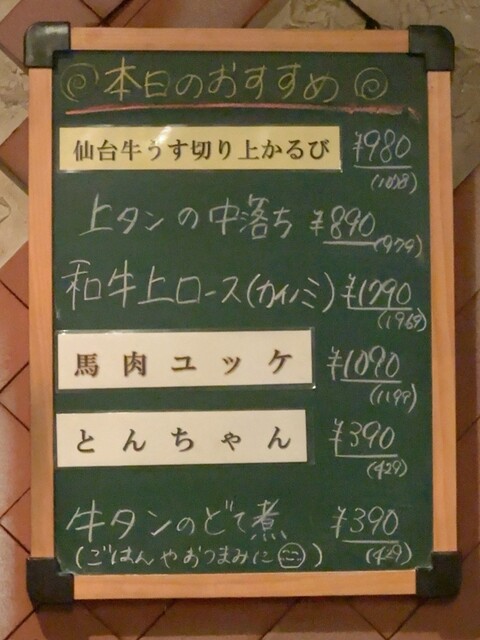 本日のおすすめ
仙台牛うす切り上かるび ¥980
(1078)
上タンの中落ち ¥890
(979)
和牛上ロース(カイノミ) ¥1790
(1969)
馬肉ユッケ ¥1090
(1199)
とんちゃん ¥390
(429)
牛タンのどて煮 ¥390
(ごはんやおつまみに) (429)